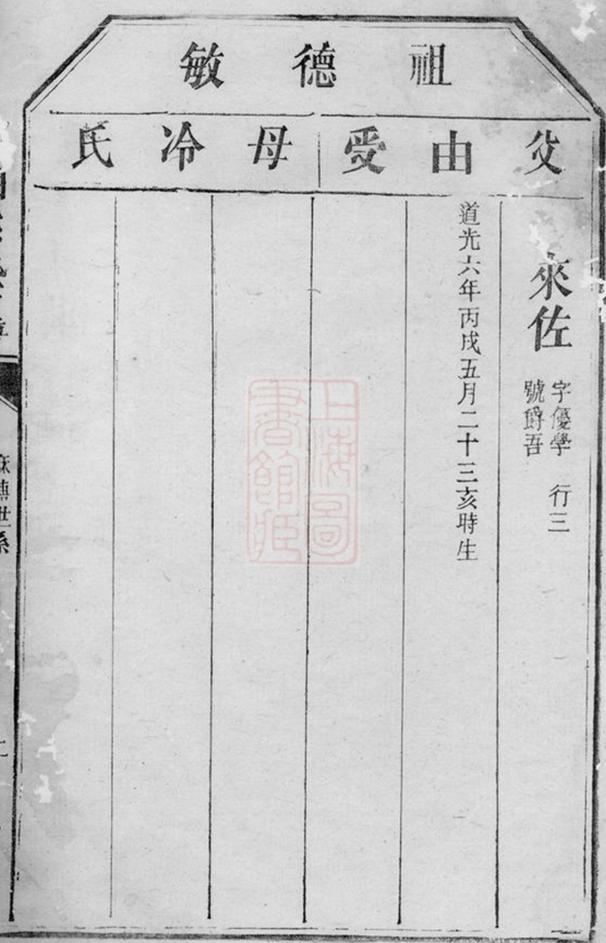 祖德敏
父由受
母冷氏
來佐
字優學 行三
號爵吾
道光六年丙戌五月二十三亥時生
上海圖
書館藏
世系